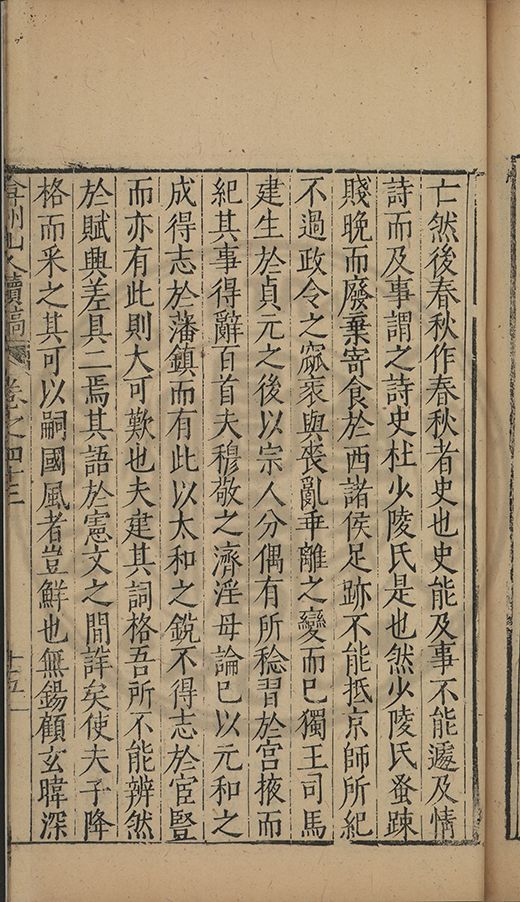 亡然後春秋作春秋者史也史能及事不能遽及情
詩而及事謂之詩史杜少陵氏是也然少陵氏蚤踈
賤晚而廢棄寄食於西諸侯足跡不能抵京師所紀
不過政令之窳衺與喪亂乖離之變而已獨王司馬
建生於貞元之後以宗人分偶有所稔習於宮掖而
紀其事得辭百首夫穆敬之濟淫毋論已以元和之
成得志於藩鎮而有此以太和之銳不得志於宦豎
而亦有此則大可歎也夫建其詞格吾所不能辨然
於賦興差具二焉其語於憲文之間詳矣使夫子降
格而采之其可以嗣國風者豈鮮也無錫顧玄暐深
弇州山人續稿 卷之四十三 十五